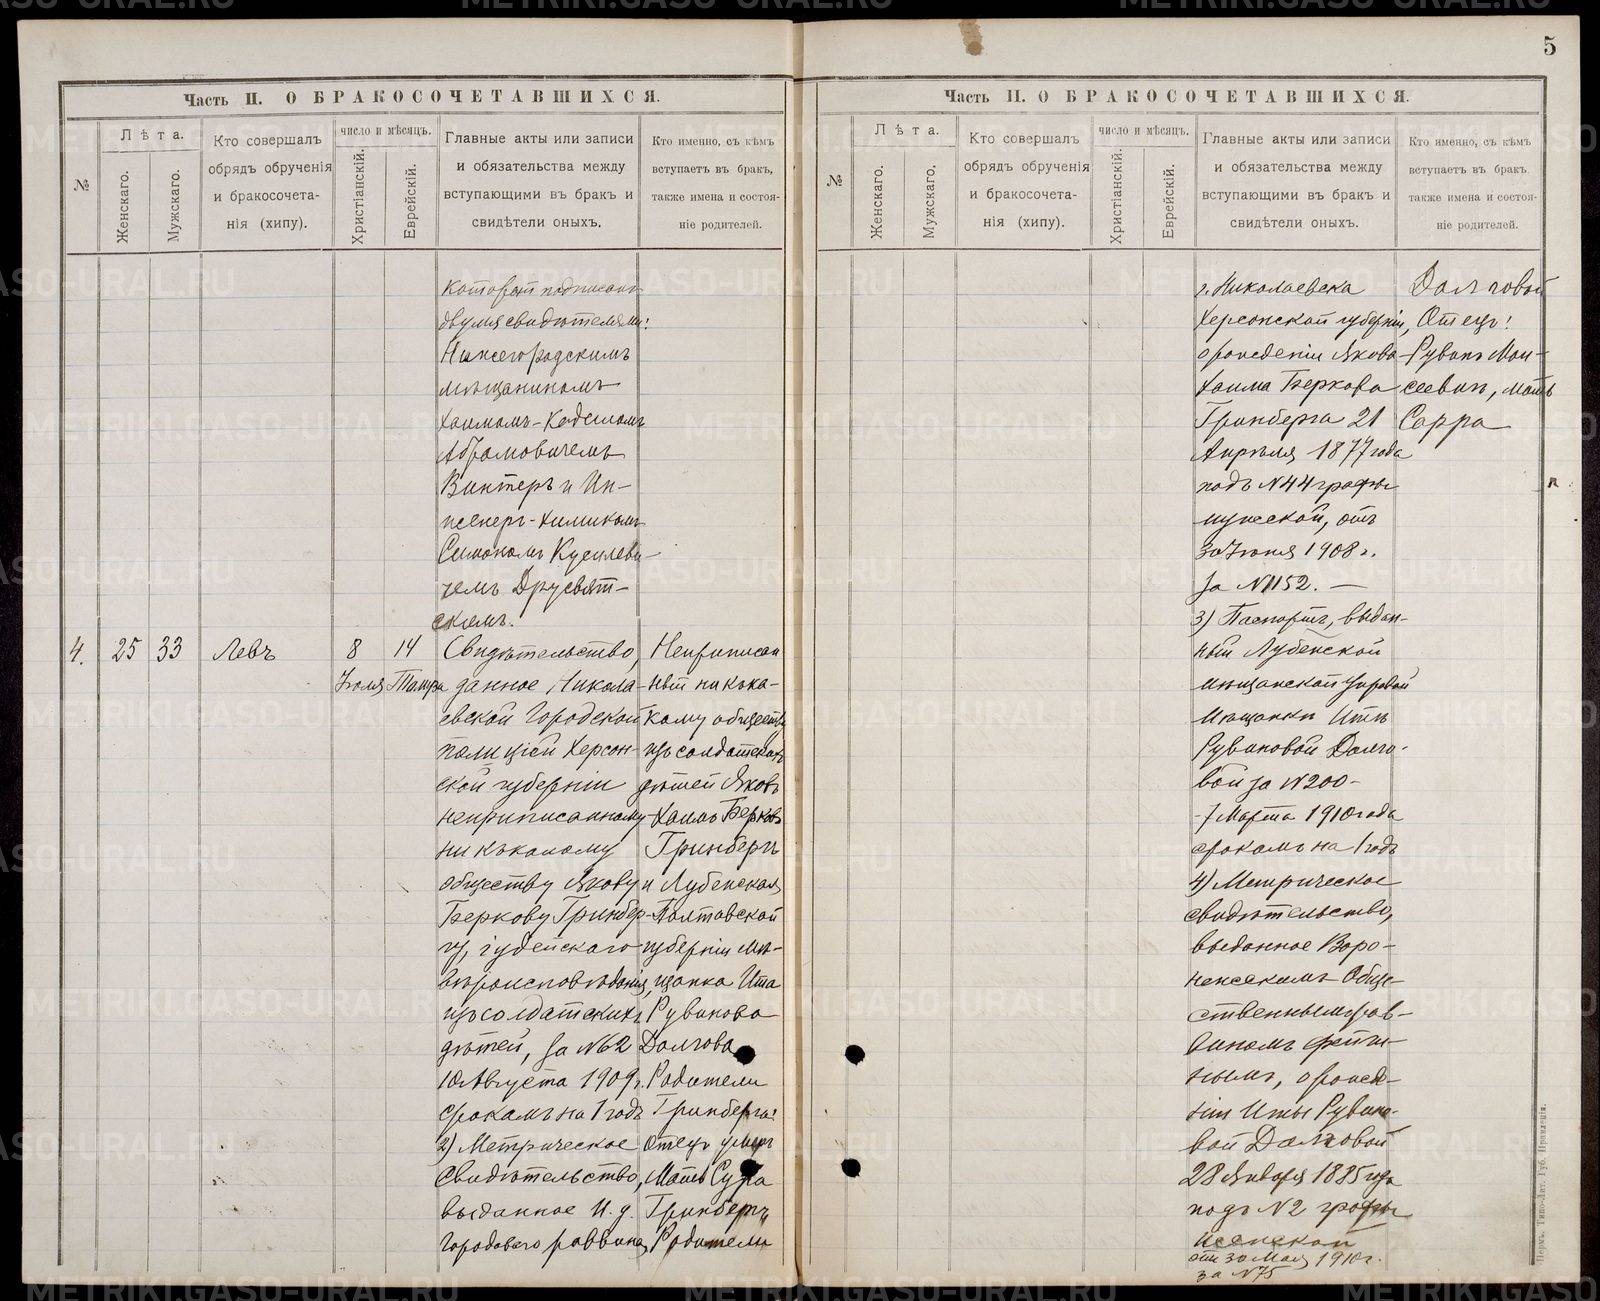 5
Часть II. О БРАКОСОЧЕТАВШИХСЯ.
№
Лѣта.
Женскаго.
Мужскаго.
Кто совершалъ
обрядъ обрученія
и бракосочета-
нія (хипу).
число и мѣсяцъ.
Христіанскій.
Еврейскій.
Главные акты или записи
и обязательства между
вступающими въ бракъ и
свидѣтели оныхъ.
Кто именно, съ кѣмъ
вступаетъ въ бракъ,
также имена и состоя-
ніе родителей.
двумя свидѣтелями:
Нижегородскимъ
мѣщаниномъ
Абрамовичемъ
Винтеръ и Ин-
женеръ-химикомъ
чемъ Друсвят-
скимъ.
4.
25
33
Левъ
8
Іюля
14
Свидѣтельство,
данное Никола-
евской Городской
полиціей Херсон-
ской губерніи
неприписанному
ни къ какому
обществу Якову
Беркову Гринбер-
гу, іудейскаго
вѣроисповѣданія,
изъ солдатскихъ
дѣтей, за №62
10 Августа 1909 г.
срокомъ на 1 годъ
2) Метрическое
Свидѣтельство,
выданное И. д.
Городового раввина
Неприписан
ный ни къ ка-
кому обществу
изъ солдатскихъ
дѣтей Яковъ
Хаимъ Берковъ
Гринбергъ
и Лубенская
Полтавской
губерніи мѣ-
щанка Ита
Рувинова
Долгова
Родители
Гринберга:
Отецъ умеръ
Мать Сура
Гринбергъ
Родители
Часть II. О БРАКОСОЧЕТАВШИХСЯ.
№
Лѣта.
Женскаго.
Мужскаго.
Кто совершалъ
обрядъ обрученія
и бракосочета-
нія (хипу).
число и мѣсяцъ.
Христіанскій.
Еврейскій.
Главные акты или записи
и обязательства между
вступающими въ бракъ и
свидѣтели оныхъ.
Кто именно, съ кѣмъ
вступаетъ въ бракъ.
также имена и состоя-
ніе родителей.
г. Николаевска
Херсонской губерніи,
о рожденіи Якова-
Хаима Беркова
Гринберга 21
Апрѣля 1877 года
подъ №44 графы
мужской, отъ
30 Іюня 1908 г.
за №1152. —
3) Паспортъ, выдан-
ный Лубенской
мѣщанской Управой
Мѣщанкѣ Итѣ
Рувиновой Долго-
вой за №200 -
7 Марта 1910 года
срокомъ на 1 годъ
4) Метрическое
свидѣтельство,
выданное Воро-
нежскимъ Обще-
ственнымъ рав-
виномъ Фейги-
нымъ, о рожде-
ніи Иты Рувино-
вой Долговой
28 Января 1885 года
подъ №2 графы
женской
отъ 30 Мая 1910 г.
за №75
Долговой
Отецъ:
Рувинъ Мои-
сеевичъ, мать
Сарра
Пермь. Типо-Лит. Губ. Правленія.
METRIKI.GASO-URAL.RU